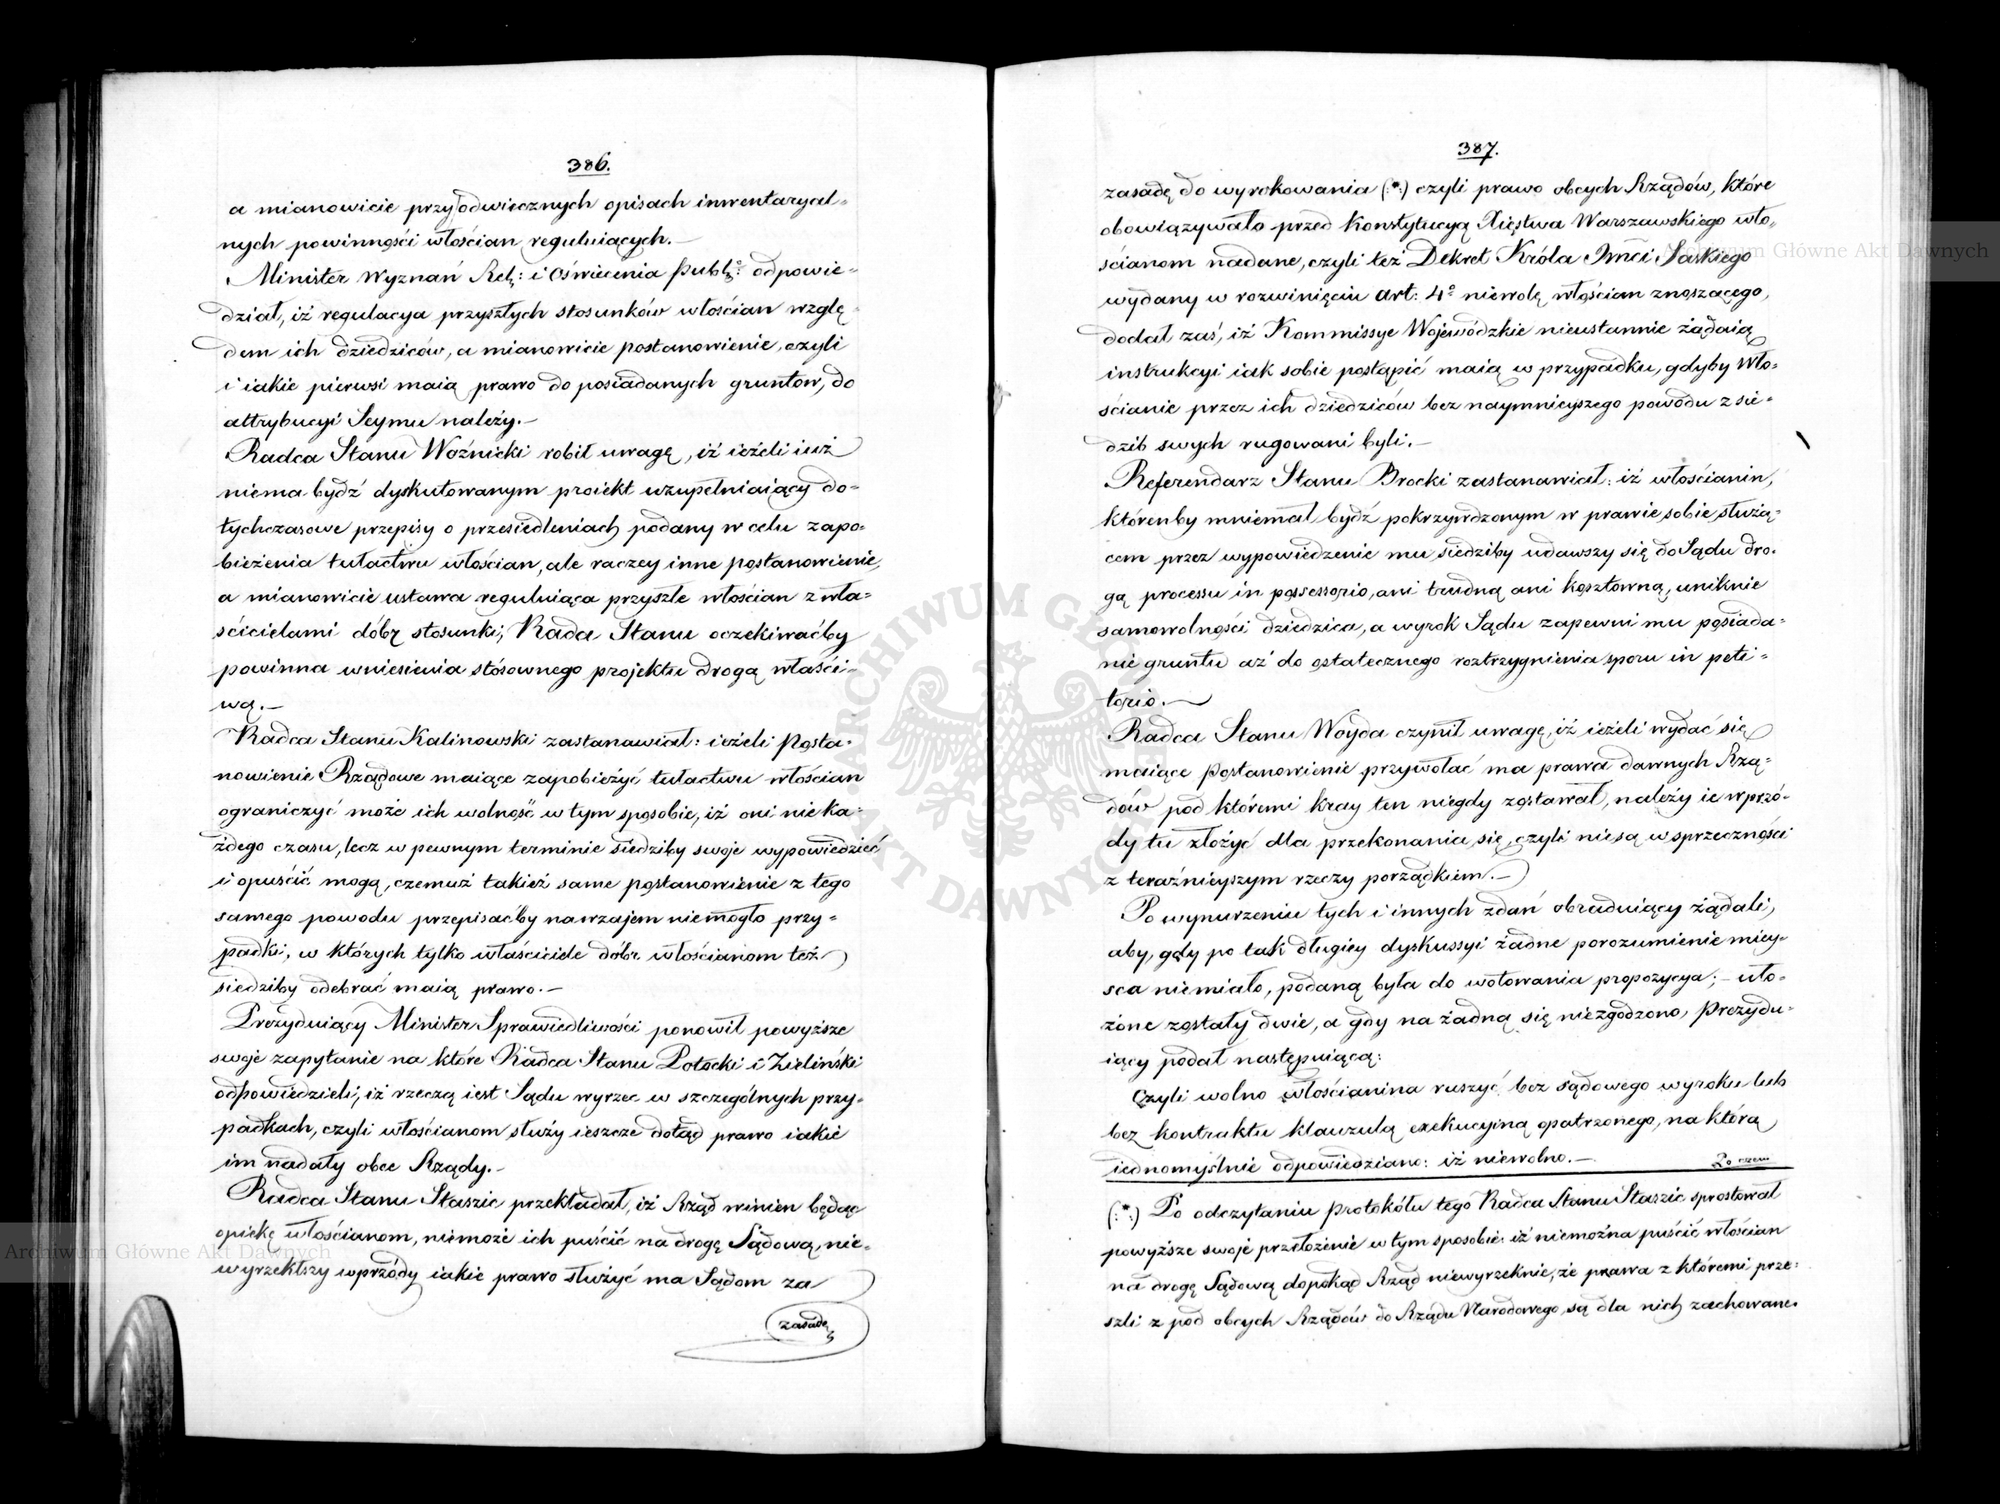 386.
a mianowicie przy odwiecznych opisach inwentaryal-
nych powinności włościan reguluiących.—
Minister Wyznań Rel: i Oświecenia Publ: odpowie-
dział, iż regulacya przyszłych stosunków włościan wzglę-
dem ich dziedziców, a mianowicie postanowienie, czyli
i iakie pierwsi maią prawo do posiadanych gruntow, do
attrybucyi Seymu należy.—
Radca Stanu Woźnicki robił uwagę, iż ieżeli iuż
niema bydź dyskutowanym proiekt uzupełniaiący do-
tychczasowe przepisy o przesiedleniach podany w celu zapo-
bieżenia tułactwu włościan, ale raczey inne postanowienie,
a mianowicie ustawa reguluiąca przyszłe włościan z wła-
ścicielami dóbr stosunki, Rada Stanu oczekiwaćby
powinna wniesienia stósownego projektu drogą właści-
wą.—
Radca Stanu Kalinowski zastanawiał: ieżeli Posta-
nowienie Rządowe maiące zapobieżyć tułactwu włościan
ograniczyć może ich wolność w tym sposobie, iż oni nie ka-
żdego czasu, lecz w pewnym terminie siedziby swoje wypowiedzieć
i opuścić mogą, czemuż takież same postanowienie z tego
samego powodu przepisaćby nawzajem niemogło przy-
padki, w których tylko właściciele dóbr włościanom też
siedziby odebrać maią prawo.—
Prezyduiący Minister Sprawiedliwości ponowił powyższe
swoje zapytanie na które Radca Stanu Potocki i Zieliński
odpowiedzieli, iż rzeczą iest Sądu wyrzec w szczególnych przy-
padkach, czyli włościanom służy ieszcze dotąd prawo iakie
im nadały obce Rządy.—
Radca Stanu Staszic przekładał, iż Rząd winien będąc
opiekę włościanom, niemoże ich puścić na drogę Sądową, nie-
wyrzekłszy wprzódy iakie prawo służyć ma Sądom za
zasadę
387.
zasadę do wyrokowania (:*:) czyli prawo obcych Rządów, które
obowiązywało przed Konstytucyą Xięstwa Warszawskiego wło-
ścianom nadane, czyli też Dekret Króla Jmci Saskiego
wydany w rozwinięciu art: 4° niewolę włościan znoszącego,
dodał zaś, iż Kommissye Woiewódzkie nieustannie żądaią
instrukcyi iak sobie postąpić maią w przypadku, gdyby Wło-
ścianie przez ich dziedziców bez naymnieyszego powodu z sie-
dzib swych rugowani byli.—
Referendarz Stanu Brocki zastanawiał: iż włościanin,
którenby mniemał bydź pokrzywdzonym w prawie sobie służą-
cem przez wypowiedzenie mu siedziby udawszy się do Sądu dro-
gą processu in possessorio, ani trudną ani kosztowną, uniknie
samowolności dziedzica, a wyrok Sądu zapewni mu posiada-
nie gruntu aż do ostatecznego roztrzygnienia sporu in peti-
torio.—
Radca Stanu Woyda czynił uwagę, iż ieżeli wydać się
maiące postanowienie przywołać ma prawa dawnych Rzą-
dów pod któremi kray ten niegdy zostawał, należy ie wprzó-
dy tu złożyć dla przekonania się, czyli nie są w sprzeczności
z teraźnieyszym rzeczy porządkiem.—
Po wynurzeniu tych i innych zdań obraduiący żądali,
aby, gdy po tak długiey dyskussyi żadne porozumienie miey-
sca niemiało, podaną była do wotowania propozycya; – uło-
żone zostały dwie, a gdy na żadną się niezgodzono, Prezydu-
iący podał następuiącą:
Czyli wolno włościanina ruszyć bez sądowego wyroku lub
bez kontraktu klauzulą exekucyiną opatrzonego, na którą
iednomyślnie odpowiedziano: iż niewolno.—
Po czem
(:*:) Po odczytaniu protokółu tego Radca Stanu Staszic sprostował
powyższe swoje przełożenie w tym sposobie: iż niemożna puścić włościan
na drogę Sądową dopokąd Rząd niewyrzeknie, że prawa z któremi prze-
szli z pod obcych Rządów do Rządu Narodowego są dla nich zachowane.
Archiwum Główne Akt Dawnych
Archiwum Główne Akt Dawnych
ARCHIWUM GŁÓWNE AKT DAWNYCH